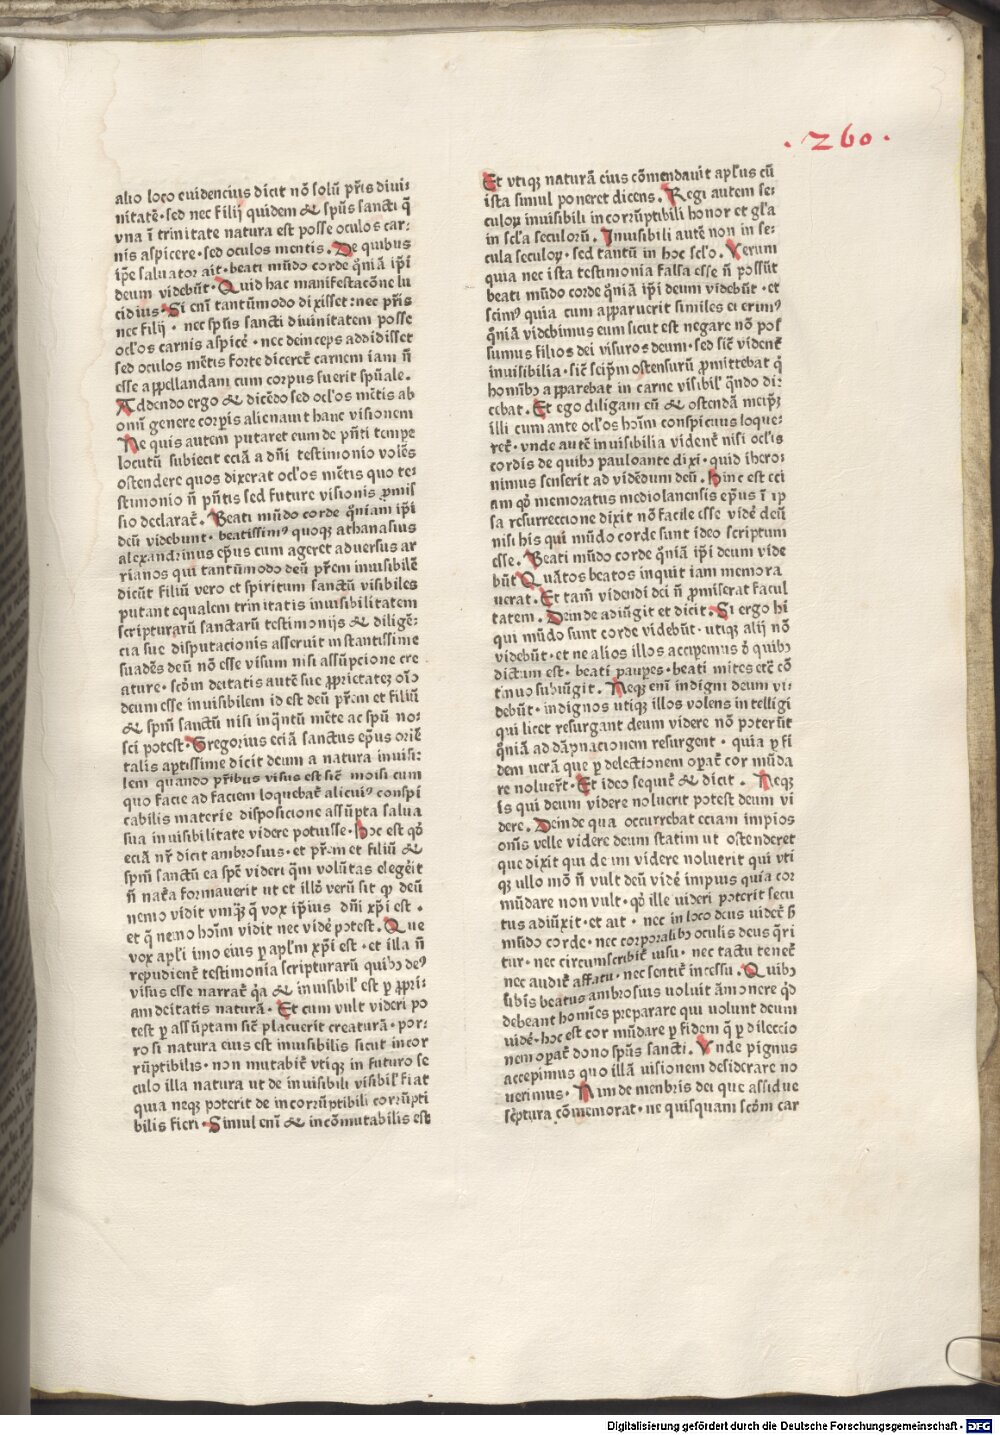 .260.
alio loco euidencius dicit nō solū p̄ris diui⸗
nitatē·sed nec filij quidem & sp̄us sancti q̄
vna ī trinitate natura est posse oculos car⸗
nis aspicere·sed oculos mentis. De quibus
ip̄e saluator ait·beati mūdo corde q̄niā ip̄i
deum videbūt·Quid hac manifestacōne lu
cidius·Si enī tantūmodo dixisset:nec p̄ris
nec filij · nec sp̄us sancti diuinitatem posse
ocl'os carnis aspicē · nec deinceps addidisset
sed oculos mētis forte dicerēt carnem iam n̄
esse appellandam cum corpus fuerit spūale.
Addendo ergo & dicēdo sed ocl'os mētis ab
omī genere corp̄is alienauit hanc visionem
Ne quis autem putaret eum de p̄nti tempe
locutū subiecit eciā a dn̄i testimonio volēs
ostendere quos dixerat ocl'os mētis quo te⸗
stimonio n̄ p̄ntis sed future visionis ꝓmis
sio declarat̄. Beati mūdo corde q̄niam ip̄i
deū videbunt·beatissim⁹ quoqꝫ athanasius
alexandrinus ep̄us cum ageret aduersus ar
rianos qui tantūmodo deū p̄rem inuisibilē
dicūt filiū vero et spiritum sanctū visibiles
putant equalem trinitatis inuisibilitatem
scripturarū sanctarū testimonijs & diligē⸗
cia sue disputacionis asseruit instantissime
suadēs deū nō esse visum nisi assūpcione cre
ature·scd̄m deitatis autē sue ꝓprietatez oīo
deum esse inuisibilem id est deū p̄rem et filiū
& sp̄m sanctū nisi inq̄ntū mēte ac spū no⸗
sci potest·Gregorius eciā sanctus ep̄us oriē
talis aptissime dicit deum a natura inuisi⸗
lem quando p̄ribus visus est sic̄ moisi cum
quo facie ad faciem loquebat̄ alicui⁹ conspi
cabilis materie disposicione assūpta salua
sua inuisibilitate videre potuisse·Hoc est qd̄
eciā nr̄ dicit ambrosius·et p̄rem et filiū &
sp̄m sanctū ea spē videri q̄m volūtas elegēit
n̄ nat̄a formauerit ut et illd̄ verū sit ꝙ deū
nemo vidit vnq̄ꝫ q̄ vox ip̄ius dn̄i xp̄i est ·
et q̄ nemo hoīm vidit nec vidē potest. Que
vox apl'i imo eius ꝑ apl'm xp̄i est·et illa n̄
repudient̄ testimonia scripturarū quibꝫ de⁹
visus esse narrat̄ q̄a & inuisibil' est ꝑ ꝓpri⸗
am deitatis naturā· Et cum vult videri po
test ꝑ assūptam sic̄ placuerit creaturā·por⸗
ro si natura eius est inuisibilis sicut incor
rūptibilis·non mutabit̄ vtiqꝫ in futuro se
culo illa natura ut de inuisibili visibil' fiat
quia neqꝫ poterit de incorrūptibili corrūpti
bilis fieri·Simul enī & incōmutabilis est
Et vtiqꝫ naturā eius cōmendauit apl'us cū
ista simul poneret dicens. Regi autem se⸗
culoꝝ inuisibili incorrūptibili honor et gl'a
in scl'a seculorū. Inuisibili autē non in se⸗
cula seculoꝝ·sed tantū in hoc scl'o. Verum
quia nec ista testimonia falsa esse n̄ possūt
beati mūdo corde q̄niā ip̄i deum videbūt·et
scim⁹ quia cum apparuerit similes ei erim⁹
q̄niā videbimus eum sicut est negare nō pos
sumus filios dei visuros deum·sed sic̄ vident̄
inuisibilia·sic̄ seip̄m ostensurū ꝓmittebat q̄
homībꝫ apparebat in carne visibil' q̄ndo di⸗
cebat. Et ego diligam eū & ostendā meip̄ꝫ
illi cum ante ocl'os hoīm conspicuus loque⸗
ret̄·vnde autē inuisibilia vident̄ nisi ocl'is
cordis de quibꝫ pauloante dixi·quid ihero⸗
nimus senserit ad vidēdum deū. Hinc est eci
am qd̄ memoratus mediolanensis ep̄us ī ip
sa resurreccione dixit nō facile esse vidē deū
nisi his qui mūdo corde sunt ideo scriptum
esse. Beati mūdo corde q̄niā ip̄i deum vide
būt Quātos beatos inquit iam memora
uerat. Et tam̄ videndi dei n̄ ꝓmiserat facul
tatem. Deinde adiūgit et dicit. Si ergo hi
qui mūdo sunt corde videbūt·utiqꝫ alij nō
videbūt·et ne alios illos accipemus q̄ quibꝫ
dictum est·beati paupes·beati mites etc̄ cō
tinuo subiūgit. Neqꝫ enī indigni deum vi⸗
debūt·indignos utiqꝫ illos volens intelligi
qui licet resurgant deum videre nō poterūt
q̄niā ad dāpnacionem resurgent · quia ꝑ fi
dem uerā que ꝑ delectionem opat̄ cor mūda
re noluer̄t·Et ideo sequit̄ & dicit . Neqꝫ
is qui deum videre noluerit potest deum vi
dere. Deinde qua occurrebat eciam impios
om̄s velle videre deum statim ut ostenderet
que dixit qui deum videre noluerit qui vti
qꝫ ullo mō n̄ vult deū vidē impius quia cor
mūdare non vult·qd̄ ille uideri poterit secu
tus adiūxit·et ait · nec in loco deus uidet̄ ß
mūdo corde·nec corporalibꝫ oculis deus q̄ri
tur·nec circumscribit̄ uisu· nec tactu tenet̄
nec audit̄ affatu·nec sentit̄ incessu. Quibꝫ
ßbis beatus ambrosius uoluit āmonere qd̄
debeant homīes preparare qui uolunt deum
uidē·hoc est cor mūdare ꝑ fidem q̄ ꝑ dileccio
nem opat̄ dono sp̄us sancti. Vnde pignus
accepimus quo illā uisionem desiderare no
uerimus·Nam de menbris dei que assidue
sc̄ptura cōmemorat·ne quisquam scd̄m car
Digitalisierung gefördert durch die Deutsche Forschungsgemeinschaft - DFG